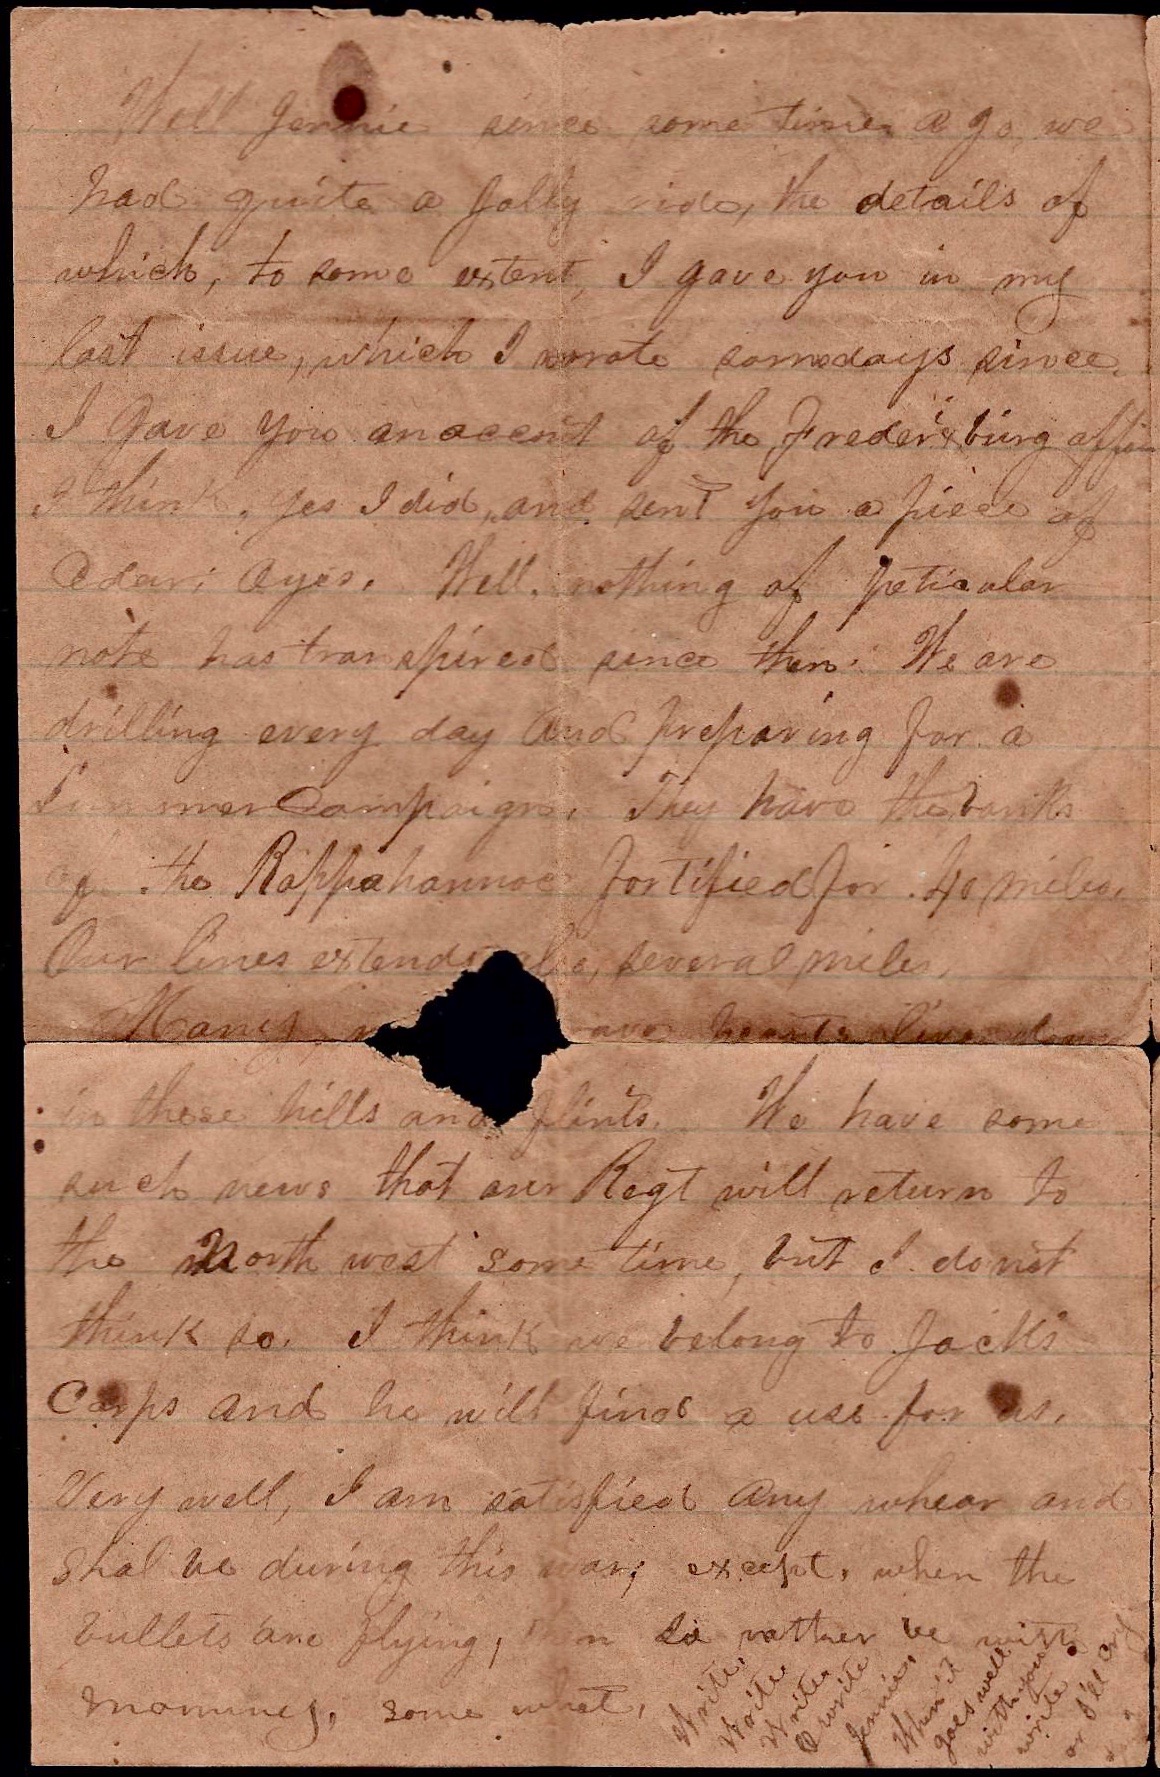 Well Jennie since some time ago, we
had quite a jolly ride, the details of
which, to some extent, I gave you in my
last issue, which I wrote somedays since.
I gave you an accent of the Frederixburg affair
I think. Yes I did, and sent you a piece of
ayes. Well. nothing of peticular
note has transpired since then. We are
drilling every day and preparing for a
Summer Campaign. They have the banks
of the Rappahannoc fortified for 40 miles.
Our lines extends also, several miles.
Many, hearts live down
in these hills and flints. We have some
such news that our Regt will return to
the North west some time, but I do not
think so. I think we belong to Jack's
Corps and he will find a use for us.
Very well, I am satisfied any whear and
shal be during this war; except, when the
bullets are flying, rather be with
some what.
Write,
Write
Write
O write
Jennie,
When it
goes well
with you
write
or I'll cry